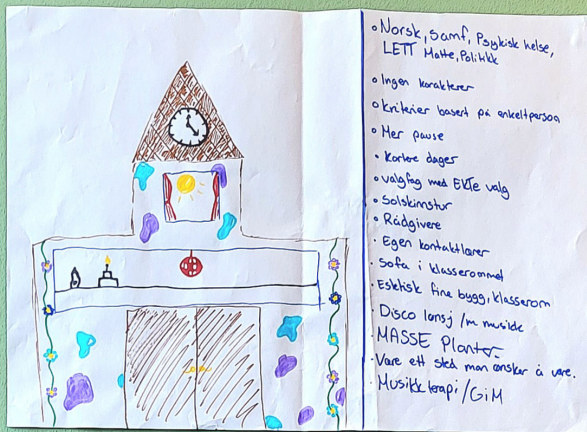 • Norsk, Samf, Psykisk helse,
LETT Matte, Politikk
• Ingen karakterer
• Kriterier basert på enkeltperson
• Mer pause
• Kortere dager
• valgfag med EKTE valg
• Solskinstur
• Rådgivere
• Egen kontaktlærer
• Sofa i klasserommet
• Estetisk fine bygg, klasserom
• Disco lunsj /m musikk
• MASSE Planter
• Være ett sted man ønsker å være.
• Musikkterapi/GiM